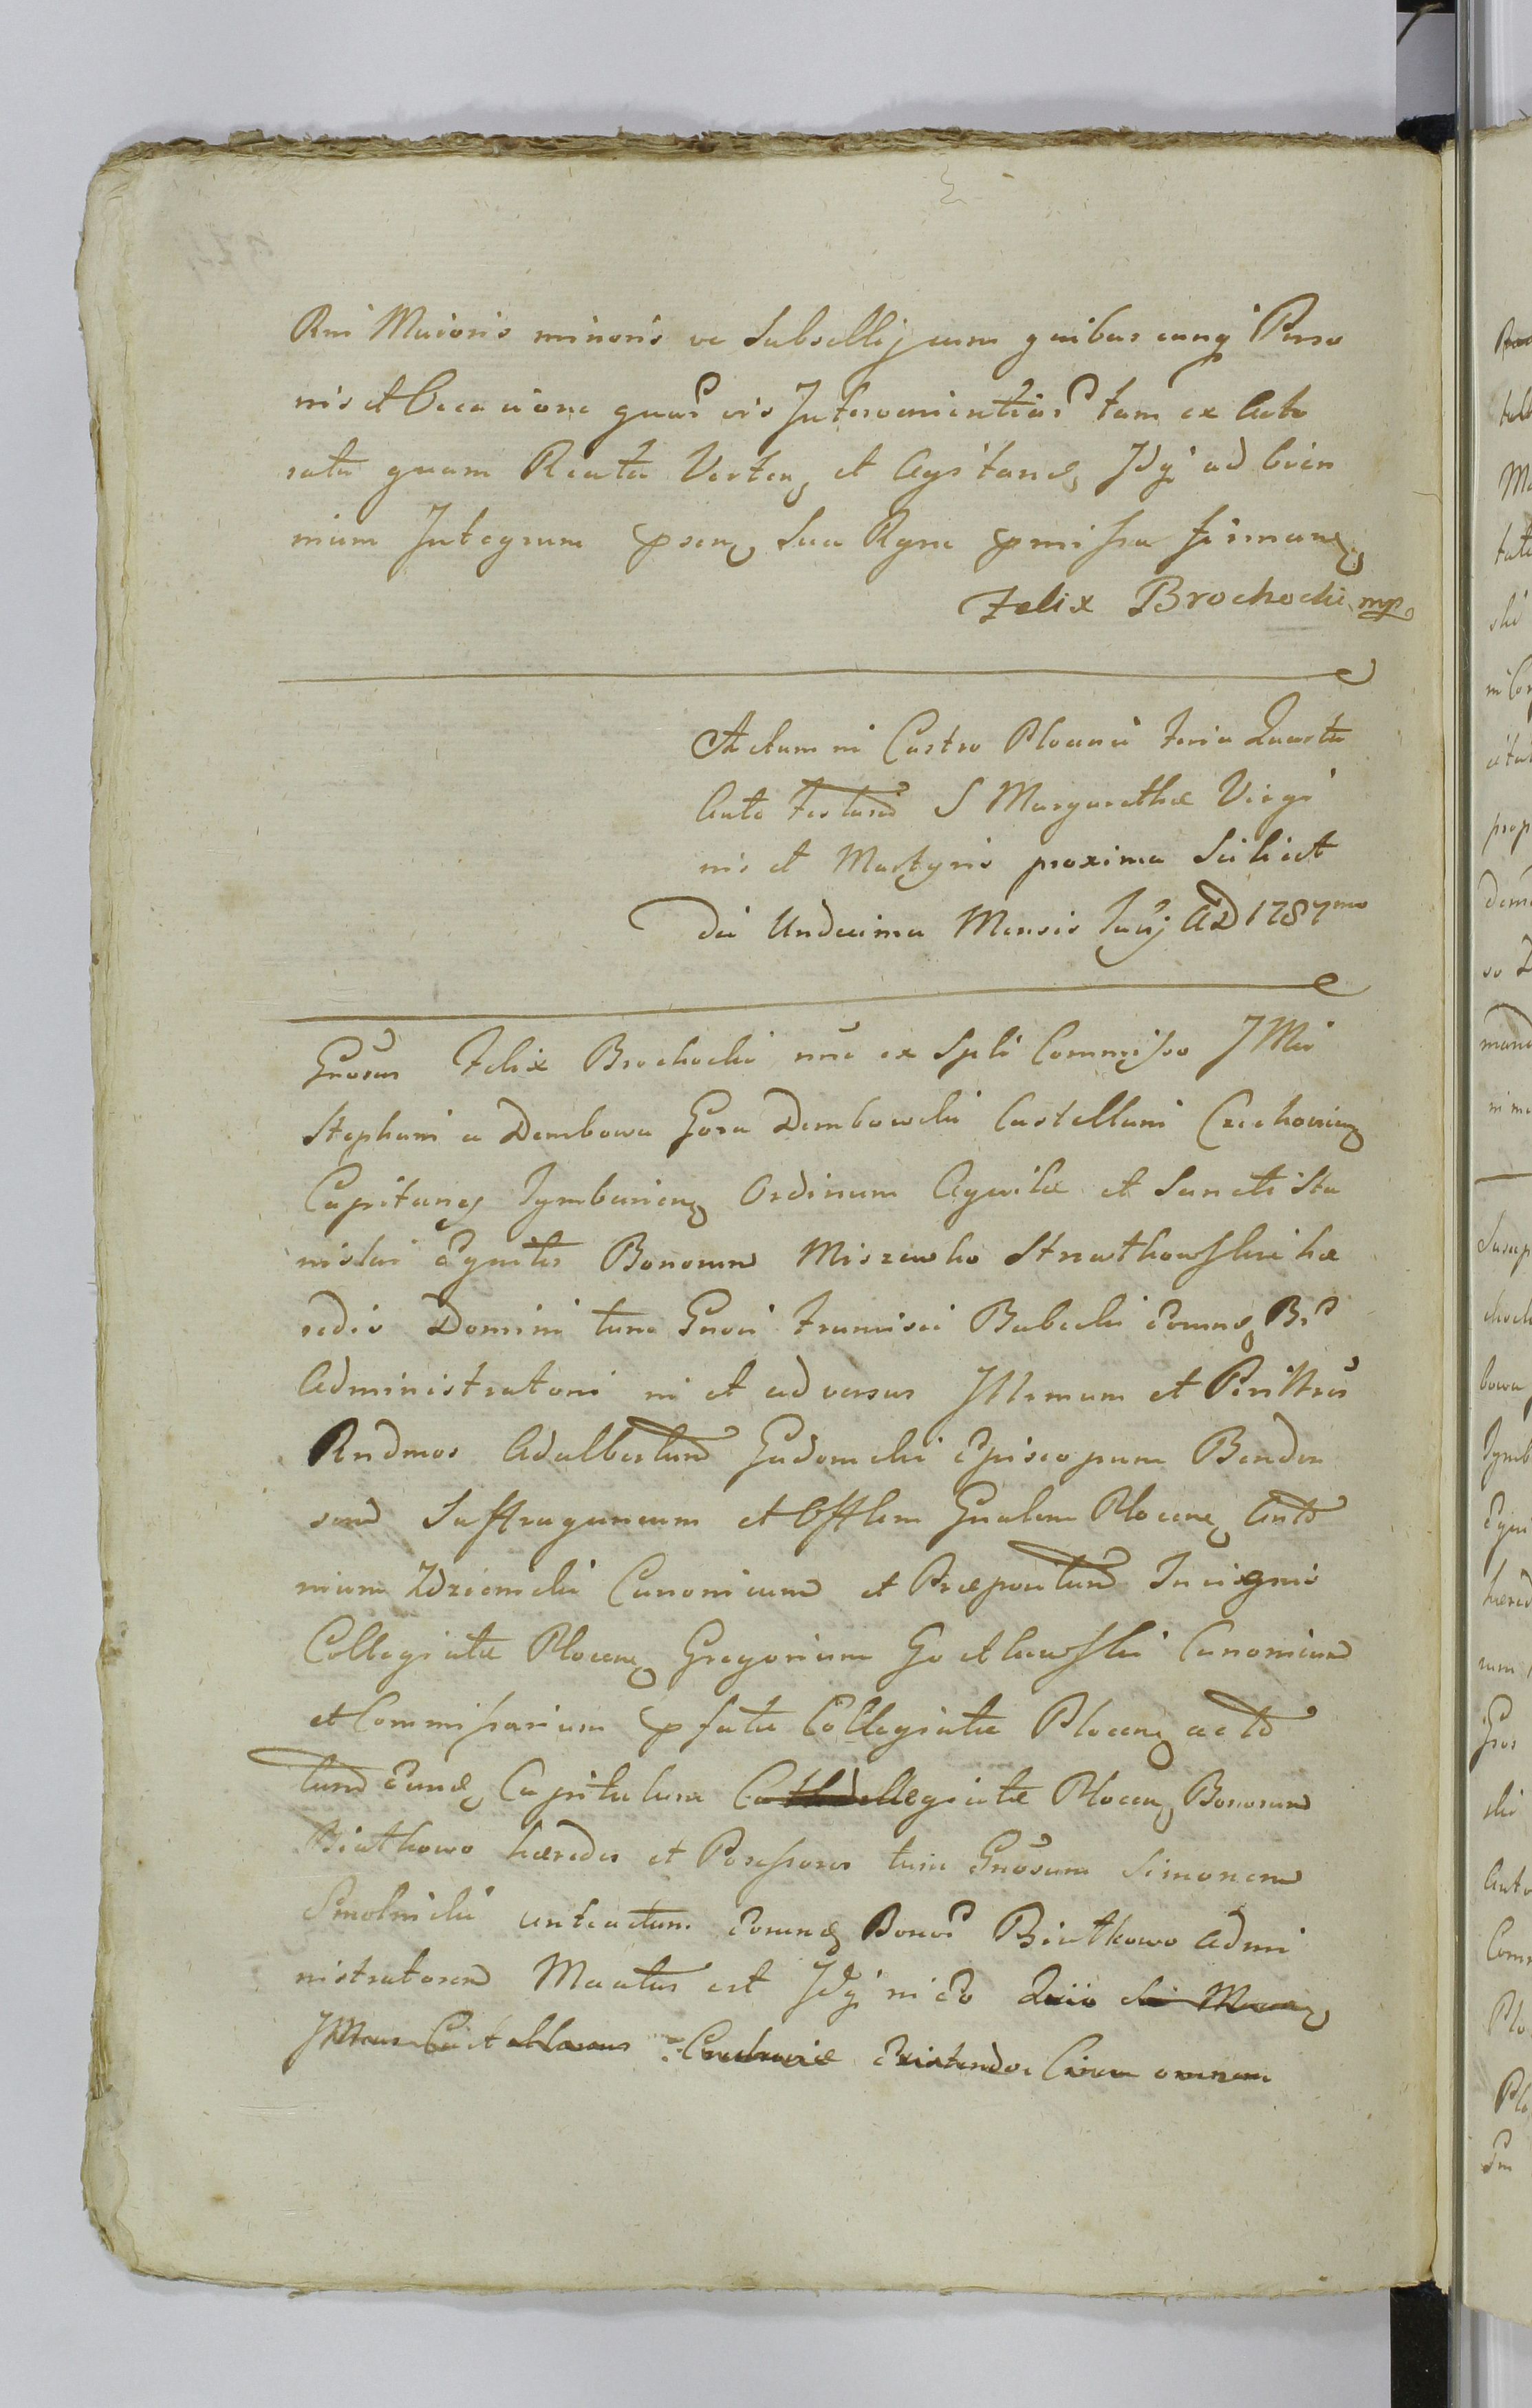 Rni Maioris minoris ve Subsellij cum quibus cunq Perso
nis et Occasione quar vis Intervenientiar tam ex Acto
ratu quam Reatu Verten et Agitand Idq ad bien
nium Integrum psen Sua Rgne pmissa firman
Felix Brochocki mp
Actum in Castro Plocensi feria Quarta
Ante festum S Margarethæ Virgi
nis et Martyris proxima Scilicet
die Undecima Mensis Julij AD 1787mo
Gnosus Felix Brochocki nne ex Spli Commisso IMci
Stephani a Dembowa Gora Dembowski Castellani Czechovien
Capitanej Tymbarien Ordinum Aquilæ et Sancti Sta
nislai Equitis Bonorum Miszewko Strzałkowskie hæ
redis Domini tunc Gnosi Francisci Babecki eorund Br
Administratoris in et adversus Illrmum et Perilltres
Rndmos Adalbertum Gadomski Episcopum Benden
sem Suffraganeum et Offlem Gnalem Plocen Anto
nium Zdziemski Canonicum et Præpositum Insignis
Collegiatæ Plocen Gregorium Goctkowski Canonicum
et Commissarium pfatæ Collegiatæ Plocen ac to
tum eund Capitulum Collegiatæ Plocen Bonorum
Białkowo hæredes et Possessores tum Gnosum Simonem
Smolinski anteactum eorund Bonor Białkowo Admi
nistratorem Maatus est Idq in eo Quia
Castellanus existendo Circa omnem